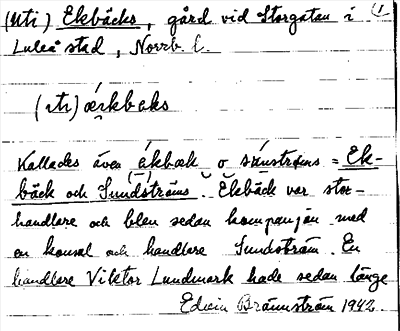 (uti) Ekbäcks, gård vid Storgatan i (1
Luleå stad, Norrb. l.
(ɩtɩ) æ̀rkbaks
Kallades även ékbæk o súnströms = Ek-
bäck och Sundströms. Ekbäck var stor-
handlare och blev sedan kompanjon med
en konsul och handlare Sundström. En
handlare Viktor Lundmark hade sedan länge
Edvin Brännström 1942.